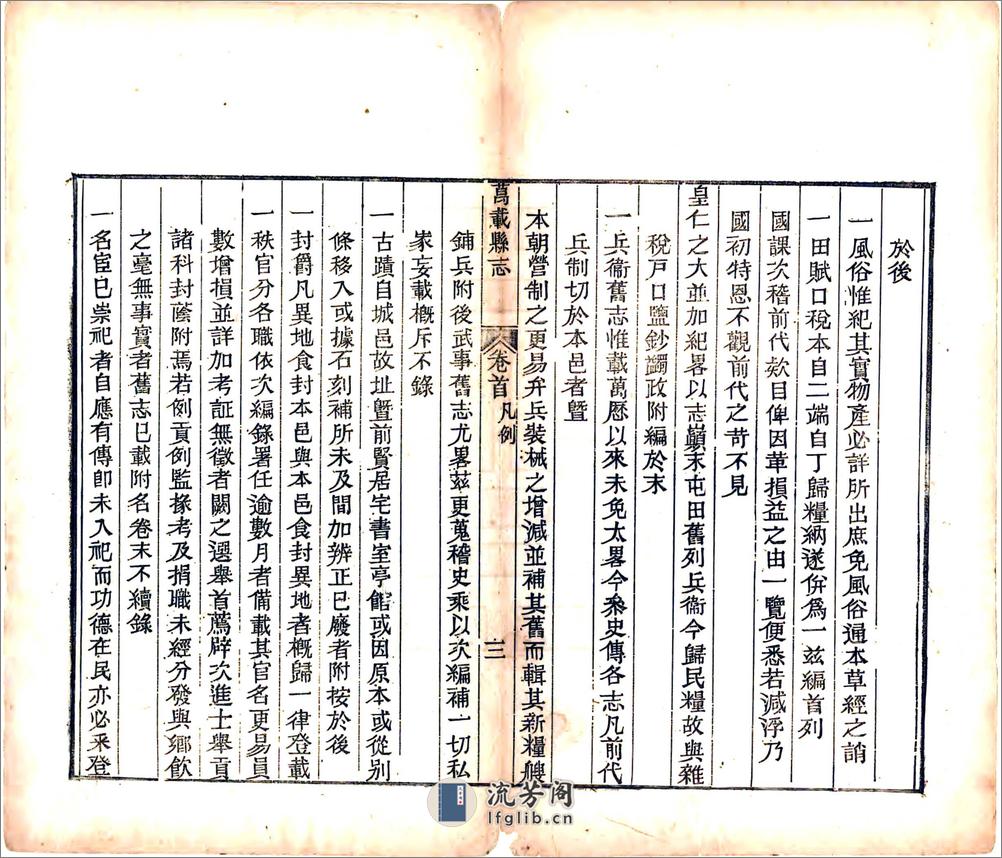 於後
一風俗惟紀其實物產必詳所出庶免風俗通本草經之誚
一田賦口稅本自二端自丁歸糧納遂倂爲一兹編首列
國課次稽前代欵目俾因革損益之由一覽便悉若減浮乃
國初特恩不觀前代之苛不見
皇仁之大並加紀畧以志巔末屯田舊列兵衞今歸民糧故與雜
稅戶口鹽鈔蠲政附編於末
一兵衞舊志惟載萬厯以來未免太畧今叅史傳各志凡前代
兵制切於本邑者曁
本朝營制之更易弁兵裝械之增減並補其舊而輯其新糧艘
萬載縣志
卷首
凡例
三
鋪兵附後武事舊志尤畧兹更蒐稽史乘以次編補一切私
家妄載槪斥不錄
一古蹟自城邑故址曁前賢居宅書室亭館或因原本或從別
條移入或據石刻補所未及間加辨正已廢者附按於後
一封爵凡異地食封本邑與本邑食封異地者槪歸一律登載
一秩官分各職依次編錄署任逾數月者備載其官名更易員
數增損並詳加考証無徵者闕之選舉首薦辟次進士舉貢
諸科封蔭附焉若例貢例監掾考及捐職未經分發與鄉飮
之毫無事實者舊志已載附名卷末不續錄
一名宦已崇祀者自應有傳卽未入祀而功德在民亦必釆登
流芳阁
lfglib.cn